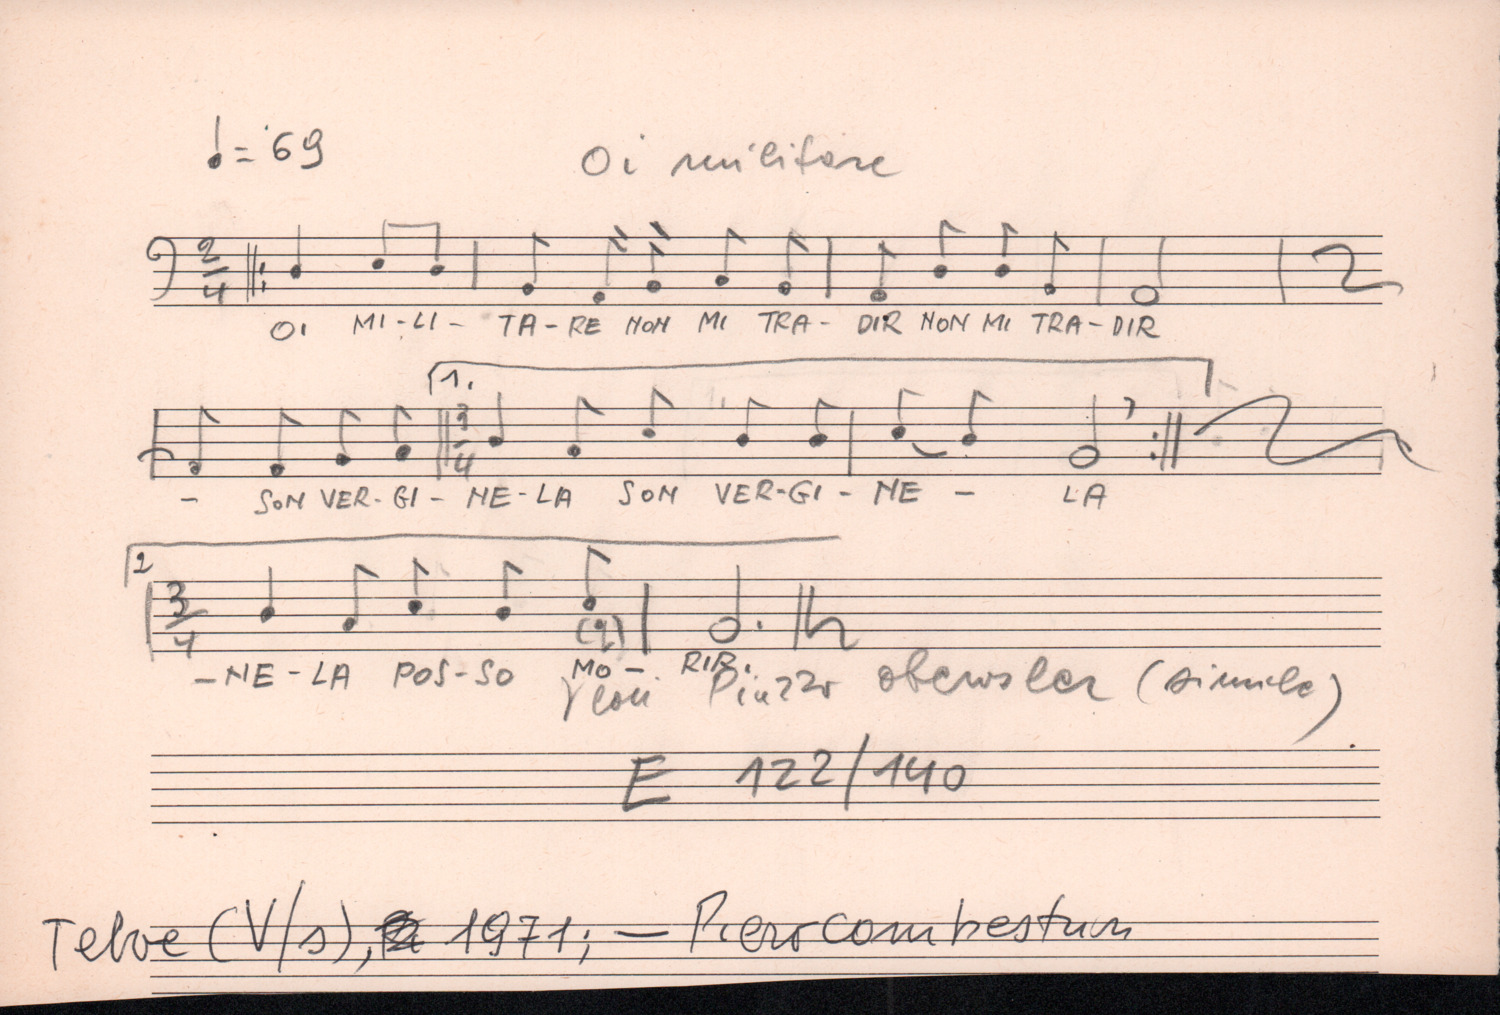 ♩= 69
Oi militare
2/4
OI MI-LI- TA-RE NON MI TRA- DIR NON MI TRA-DIR
1.
3/4
- SON VER-GI- NE-LA SON VER-GI- NE - LA
2
3/4
-NE-LA POS-SO MO- RIR.
(simile)
E 122/140
Telve (V/s), 1971; —